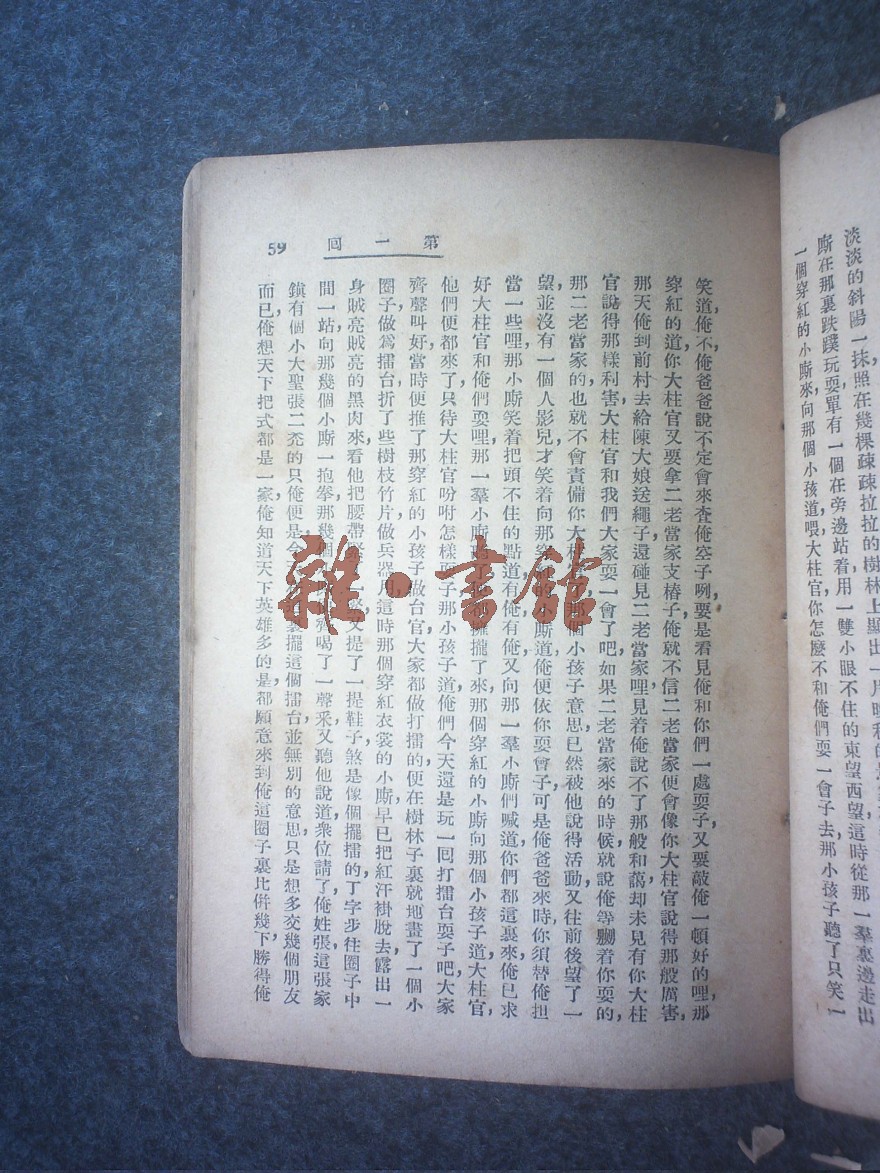 淡淡的斜陽,一抹照在幾棵疎疎拉拉的樹林上,顯出一片
廝在那裏跌蹼玩耍,單有一個在旁邊站着,用一雙小眼不住的東望西望,這時從那一羣裏邊走出
一個穿紅的小廝來,向那個小孩道,喂,大柱官,你怎麼不和俺們耍一會子去,那小孩子聽了,只笑一
第一回
59
笑道,俺不,俺爸爸說不定會來查俺空子咧,要是看見俺和你們一處耍子,又要敲俺一頓好的哩,那
穿紅的道,你大柱官又要拿二老當家支樁子,俺就不信二老當家便會像你大柱官說得那般厲害,
那天俺到前村去給陳大娘送繩子,還碰見二老當家哩,見着俺說不了那般和藹,却未見有你大柱
官說得那樣利害,大柱官和我們大家耍一會了吧,如果二老當家來的時候,就說俺等嬲着你耍的,
那二老當家的也就不會責備你大柱官了,那個小孩子意思已然被他說得活動,又往前後望了一
望,並沒有一個人影兒,才笑着向那穿紅的小廝道,俺便依你耍會子,可是俺爸爸來時,你須替俺担
當一些哩,那小廝笑着把頭不住的點道,有俺有俺,又向那一羣小廝們喊道,你們都這裏來,俺已求
好大柱官和俺們耍哩,那一羣小廝聽了,都擁攏了來,那個穿紅的小廝向那個小孩子道,大柱官,
他們便都來了,只待大柱官吩咐怎樣耍子,那小孩子道,俺們今天還是玩一囘打擂台耍子吧,大家
齊聲叫好,當時便推了那穿紅的小孩子做台官,大家都做打擂的,便在樹林子裏就地畫了一個小
圈子,做爲擂台,折了些樹枝竹片,做兵器用,這時那個穿紅衣裳的小廝,早已把紅汗褂脫去,露出一
身賊亮賊亮的黑肉來,看他把腰帶緊一緊,又提了一提鞋子,煞是像個擺擂的,丁字步往圈子中
間一站,向那幾個小廝一抱拳,那幾個小廝喝了一聲采,又聽他說道,衆位請了,俺姓張,這張家
鎮有個小大聖張二禿的只俺便是,今天這裏擺這個擂台,並無別的意思,只是想多交幾個朋友
而已,俺想天下把式都是一家,俺知道天下英雄多的是,都願意來到俺這圈子裏比併幾下,勝得俺
雜·書館